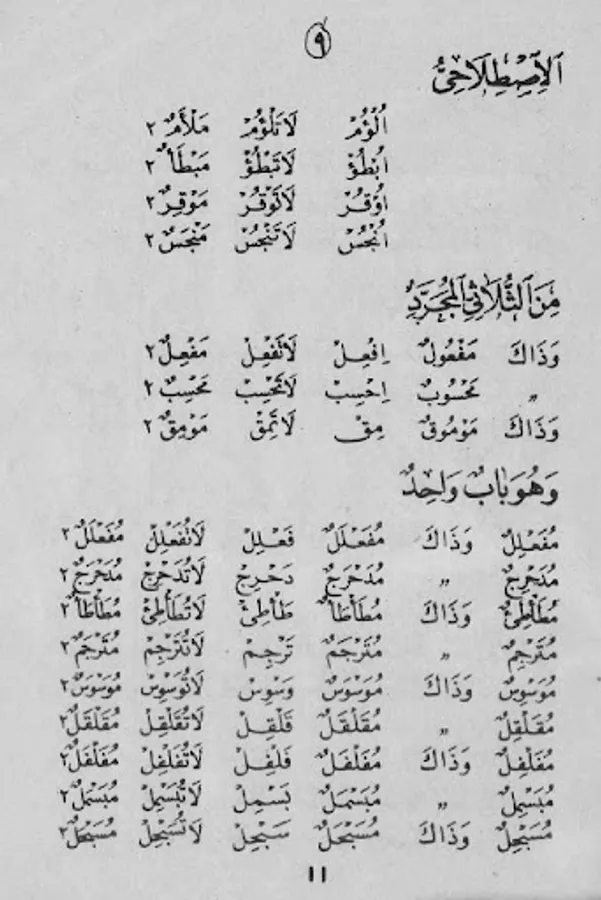 ٩
اَلْاِصْطِلَاحِىُّ
اُلْؤُمْ لَاتَلْؤُمْ مَلْأَمٌ ٢
اُبْطُؤْ لَاتَبْطُؤْ مَبْطَأٌ ٢
اُوْقُرْ لَاتَوْقُرْ مَوْقِرٌ ٢
اُنْجُسْ لَاتَنْجُسْ مَنْجَسٌ ٢
مِنَ الثُّلَاثِىِ الْمُجَرَّدِ
وَذَاكَ مَفْعُولٌ اِفْعِلْ لَاتَفْعِلْ مَفْعِلٌ ٢
〃 مَحْسُوبٌ اِحْسِبْ لَاتَحْسِبْ مَحْسِبٌ ٢
وَذَاكَ مَوْمُوقٌ مِقْ لَاتَمِقْ مَوْمِقٌ ٢
وَهُوَ بَابٌ وَاحِدٌ
مُفَعْلِلٌ وَذَاكَ مُفَعْلَلٌ فَعْلِلْ لَاتُفَعْلِلْ مُفَعْلَلٌ ٢
مُدَحْرِجٌ 〃 مُدَحْرَجٌ دَحْرِجْ لَاتُدَحْرِجْ مُدَحْرَجٌ ٢
مُطَأْطِئٌ وَذَاكَ مُطَأْطَأٌ طَأْطِئْ لَاتُطَأْطِئْ مُطَأْطَأٌ ٢
مُتَرْجِمٌ 〃 مُتَرْجَمٌ تَرْجِمْ لَاتُتَرْجِمْ مُتَرْجَمٌ ٢
مُوَسْوِسٌ وَذَاكَ مُوَسْوَسٌ وَسْوِسْ لَاتُوَسْوِسْ مُوَسْوَسٌ ٢
مُقَلْقِلٌ 〃 مُقَلْقَلٌ قَلْقِلْ لَاتُقَلْقِلْ مُقَلْقَلٌ ٢
مُفَلْفِلٌ وَذَاكَ مُفَلْفَلٌ فَلْفِلْ لَاتُفَلْفِلْ مُفَلْفَلٌ ٢
مُبَسْمِلٌ 〃 مُبَسْمَلٌ بَسْمِلْ لَاتُبَسْمِلْ مُبَسْمَلٌ ٢
مُسَبْحِلٌ وَذَاكَ مُسَبْحَلٌ سَبْحِلْ لَاتُسَبْحِلْ مُسَبْحَلٌ ٢
١١